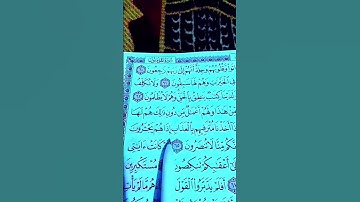 وَّقُلُوبُهُمْ وَجِلَةٌ أَنَّهُمْ إِلَىٰ رَبِّهِمْ رَٰجِعُونَ
ٱلْخَيْرَٰتِ وَهُمْ لَهَا سَٰبِقُونَ وَلَا نُكَلِّفُ
كِتَٰبٌ يَنطِقُ بِٱلْحَقِّ وَهُمْ لَا يُظْلَمُونَ
مِّنْ هَٰذَا وَلَهُمْ أَعْمَٰلٌ مِّن دُونِ ذَٰلِكَ هُمْ لَهَا
أَخَذْنَا مُتْرَفِيهِم بِٱلْعَذَابِ إِذَا هُمْ يَجْـَٔرُونَ
مِّنَّا لَا تُنصَرُونَ كَانَتْ ءَايَٰتِى
أَعْقَٰبِكُمْ تَنكِصُونَ مُسْتَكْبِرِينَ
أَفَلَمْ يَدَّبَّرُوا۟ ٱلْقَوْلَ مَّا لَمْ يَأْتِ